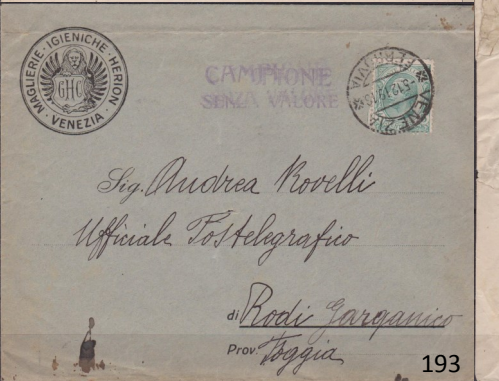 MAGLIERIE · IGIENICHE · HERION ·
VENEZIA
GHC
CAMPIONE
SENZA VALORE
VENEZIA
FERROVIA
Sig. Andrea Rovelli
Ufficiale Postelegrafico
di Rodi Garganico
Prov. Foggia
193